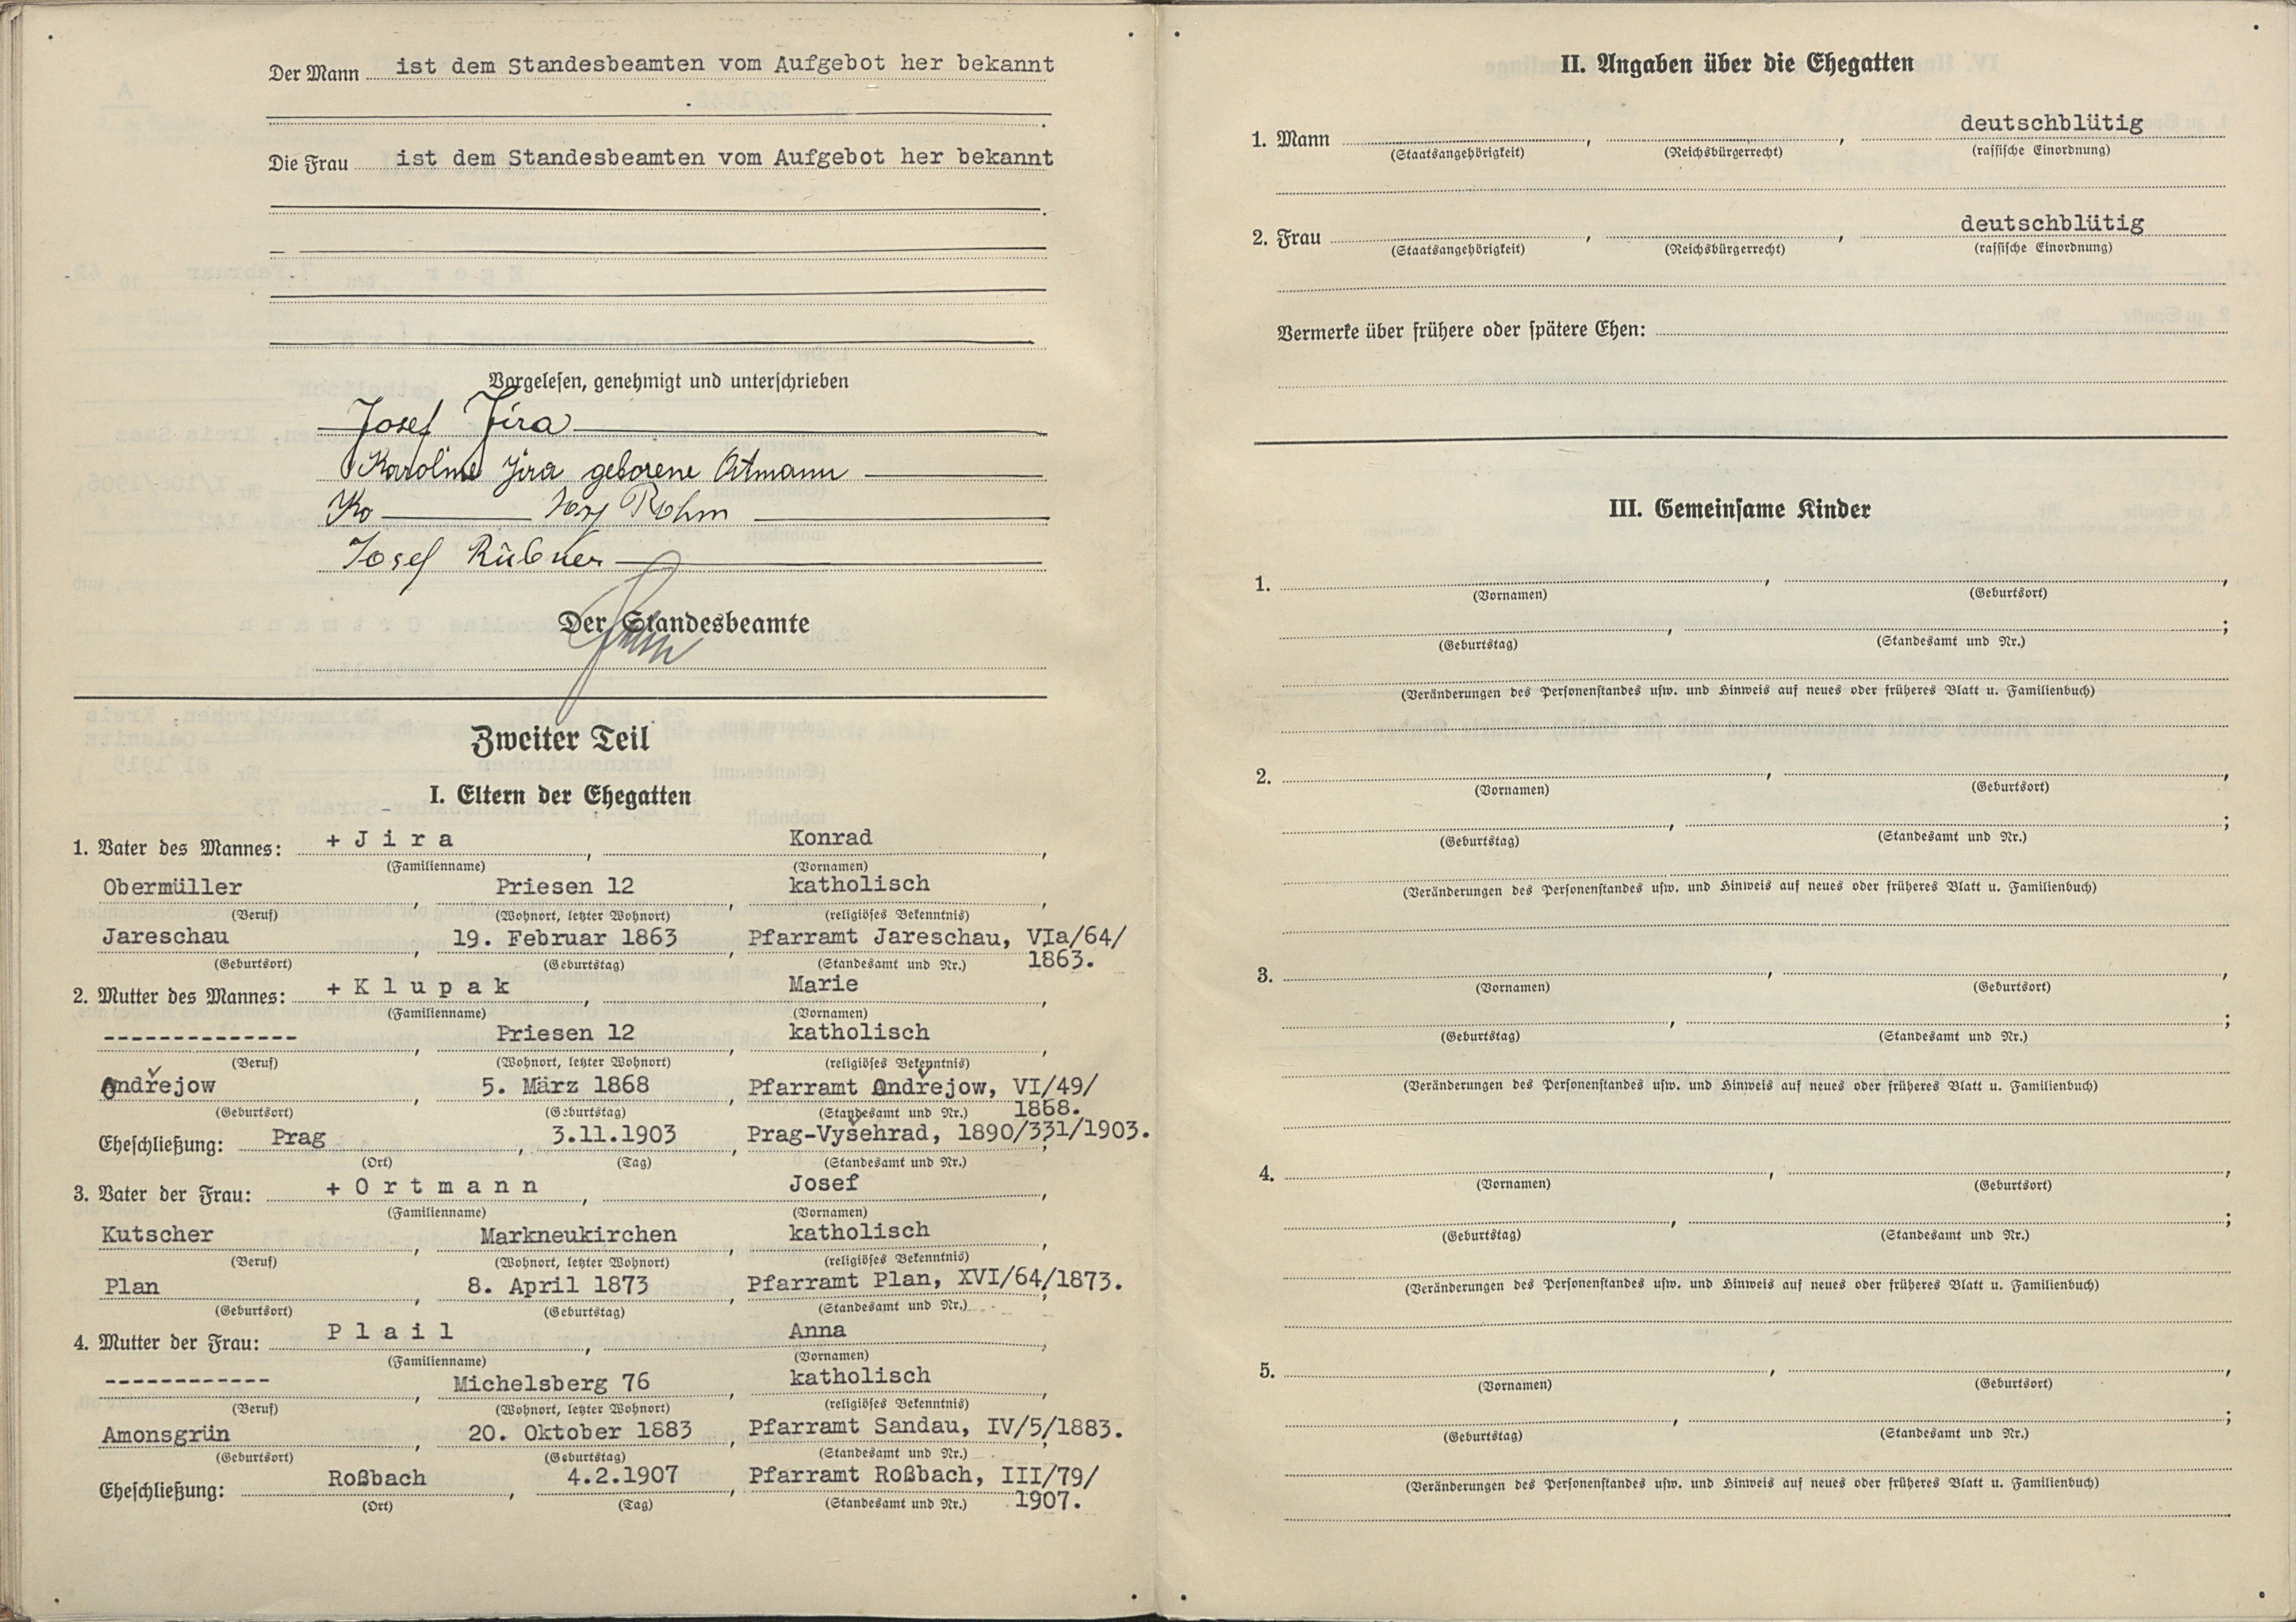 Der Mann ist dem Standesbeamten vom Aufgebot her bekannt
Die Frau ist dem Standesbeamten vom Aufgebot her bekannt
Vorgelesen, genehmigt und unterschrieben
Josef Jira
Karoline Jira geborene Ortmann
Rohm
Josef Rübner
Der Standesbeamte
Zweiter Teil
I. Eltern der Ehegatten
1. Vater des Mannes: + J i r a , Konrad ,
(Familienname) (Vornamen)
Obermüller , Priesen 12 , katholisch ,
(Beruf) (Wohnort, letzter Wohnort) (religiöses Bekenntnis)
Jareschau , 19. Februar 1863 , Pfarramt Jareschau, VIa/64/
(Geburtsort) (Geburtstag) (Standesamt und Nr.) 1863.
2. Mutter des Mannes: + K l u p a k , Marie ,
(Familienname) (Vornamen)
-------------- , Priesen 12 , katholisch ,
(Beruf) (Wohnort, letzter Wohnort) (religiöses Bekenntnis)
Ondřejow , 5. März 1868 , Pfarramt Ondřejow, VI/49/
(Geburtsort) (Geburtstag) (Standesamt und Nr.) 1868.
Eheschließung: Prag , 3.11.1903 , Prag-Vyšehrad, 1890/331/1903.
(Ort) (Tag) (Standesamt und Nr.)
3. Vater der Frau: + O r t m a n n , Josef ,
(Familienname) (Vornamen)
Kutscher , Markneukirchen , katholisch ,
(Beruf) (Wohnort, letzter Wohnort) (religiöses Bekenntnis)
Plan , 8. April 1873 , Pfarramt Plan, XVI/64/1873.
(Geburtsort) (Geburtstag) (Standesamt und Nr.)
4. Mutter der Frau: P l a i l , Anna ,
(Familienname) (Vornamen)
------------ , Michelsberg 76 , katholisch ,
(Beruf) (Wohnort, letzter Wohnort) (religiöses Bekenntnis)
Amonsgrün , 20. Oktober 1883 , Pfarramt Sandau, IV/5/1883.
(Geburtsort) (Geburtstag) (Standesamt und Nr.)
Eheschließung: Roßbach , 4.2.1907 , Pfarramt Roßbach, III/79/
(Ort) (Tag) (Standesamt und Nr.) 1907.
II. Angaben über die Ehegatten
1. Mann , , deutschblütig
(Staatsangehörigkeit) (Reichsbürgerrecht) (rassische Einordnung)
2. Frau , , deutschblütig
(Staatsangehörigkeit) (Reichsbürgerrecht) (rassische Einordnung)
Vermerke über frühere oder spätere Ehen:
III. Gemeinsame Kinder
1. , ,
(Vornamen) (Geburtsort)
, ;
(Geburtstag) (Standesamt und Nr.)
(Veränderungen des Personenstandes usw. und Hinweis auf neues oder früheres Blatt u. Familienbuch)
2. , ,
(Vornamen) (Geburtsort)
, ;
(Geburtstag) (Standesamt und Nr.)
(Veränderungen des Personenstandes usw. und Hinweis auf neues oder früheres Blatt u. Familienbuch)
3. , ,
(Vornamen) (Geburtsort)
, ;
(Geburtstag) (Standesamt und Nr.)
(Veränderungen des Personenstandes usw. und Hinweis auf neues oder früheres Blatt u. Familienbuch)
4. , ,
(Vornamen) (Geburtsort)
, ;
(Geburtstag) (Standesamt und Nr.)
(Veränderungen des Personenstandes usw. und Hinweis auf neues oder früheres Blatt u. Familienbuch)
5. , ,
(Vornamen) (Geburtsort)
, ;
(Geburtstag) (Standesamt und Nr.)
(Veränderungen des Personenstandes usw. und Hinweis auf neues oder früheres Blatt u. Familienbuch)